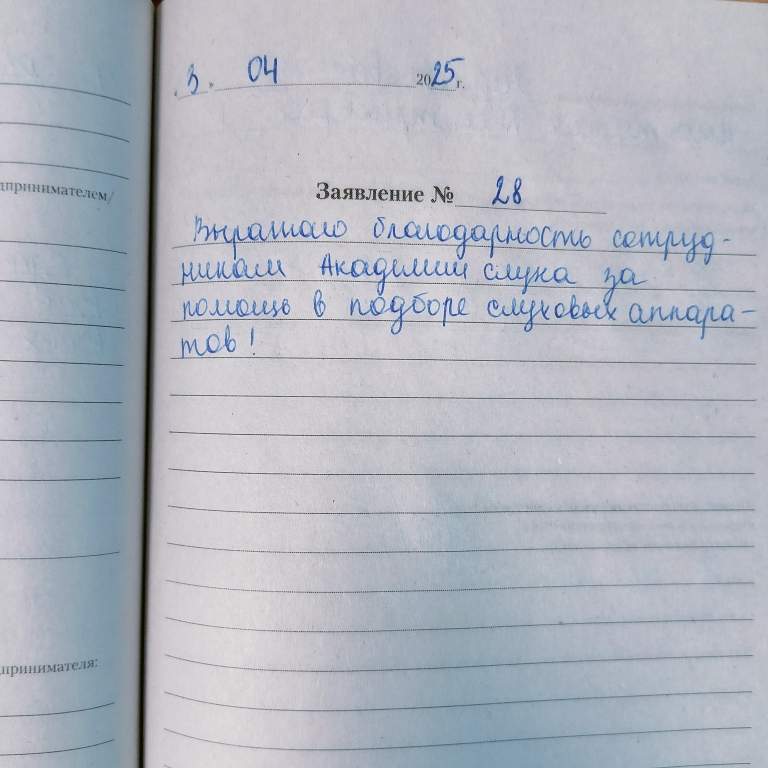 "3" 04 2025 г.
дпринимателем/
Заявление № 28
Выражаю благодарность сотруд-
никам Академии слуха за
помощь в подборе слуховых аппара-
тов!
дпринимателя: